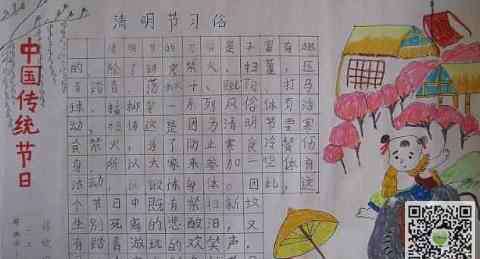 清明节习俗
中国传统节日
清明节的习俗是丰富有趣
的，除了讲究禁火、扫墓，还
有踏青、荡秋千、蹴鞠、打马
球、插柳等一系列风俗体育活
动。相传这是因为清明节要寒
食禁火，为了防止寒食冷餐伤
身，所以大家来参加一些体育
活动，以锻炼身体。因此，这
个节日中既有祭扫新坟
生别死离的悲酸泪，又
有踏青游玩的欢笑声，